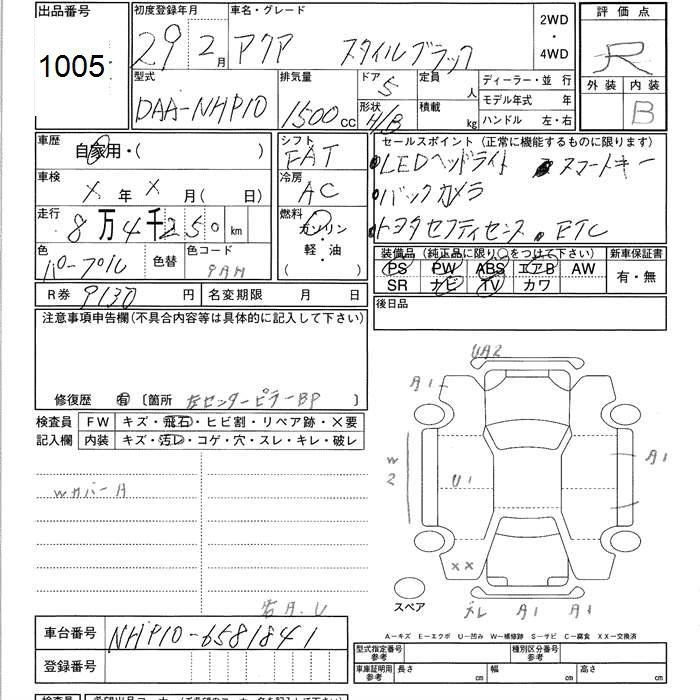 出品番号 初度登録年月 車名・グレード 2WD・4WD 評価点
1005 29年 2月 アクア スタイルブラック R
外装 内装 B
型式 排気量 ドア 5 定員 人 ディーラー・並行
DAA-NHP10 1500cc 形状 H/B 積載 kg モデル年式 年
ハンドル 左・右
車歴 自家用・( ) シフト FAT セールスポイント(正常に機能するものに限ります)
●LEDヘッドライト ●スマートキー
車検 X年 X月( 日) 冷房 AC ●バックカメラ
走行 8万4千250km 燃料 ガソリン・軽・油 ●トヨタセフティセンス ●ETC
色 パープル 色替 色コード 9AH
装備品(純正品に限り○をつけて下さい) 新車保証書
PS PW ABS エアB AW 有・無
SR ナビ TV カワ
R券 9130円 名変期限 月 日 後日品
注意事項申告欄(不具合内容等は具体的に記入して下さい)
修復歴 有 〔箇所 左センターピラーBP 〕
検査員 FW キズ・飛石・ヒビ割・リペア跡・×要
記入欄 内装 キズ・汚レ・コゲ・穴・スレ・キレ・破レ
UA2
A1
W2
U1
A1
Wカバー A
XX
スペア
ズレ A1 A1
右A.U
A-キズ E-エクボ U-凹み W-補修跡 S-サビ C-腐食 XX-交換済
車台番号 NHP10-6581841
型式指定番号 参考 種別区分番号 参考
登録番号
車庫証明用 参考 長さ cm 幅 cm 高さ cm